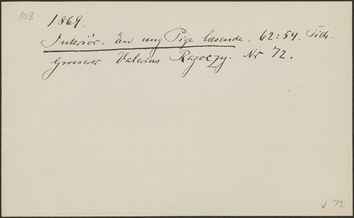 108
1864.
Interiör. En ung Pige læsende. 62:54. Tilh.
Grosserer Valerius Ragoczy. Nr 72.
72